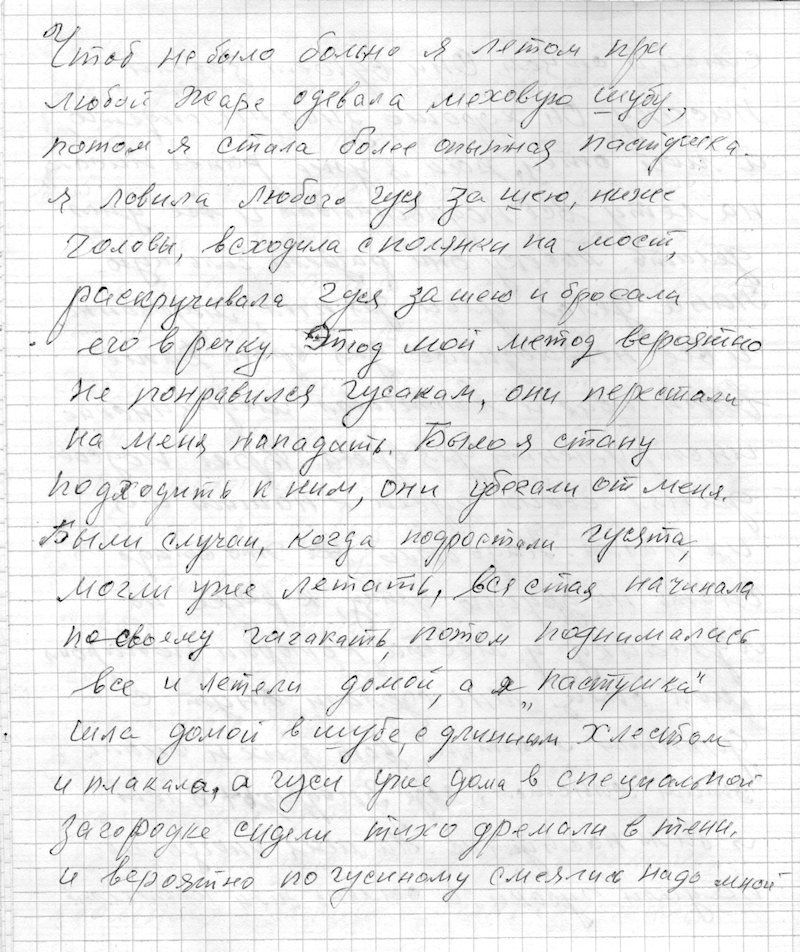 Чтоб не было больно я летом при
любой жаре одевала меховую шубу.,
потом я стала более опытная пастушка.
я ловила любого гуся за шею, ниже
головы, всходила с полянки на мост,
раскручивала гуся за шею и бросала
его в речку. Этод мой метод вероятно
не понравился гусакам, они перестали
на меня нападать. Было я стану
подходить к ним, они убегали от меня.
Были случаи, когда подростали гусята,
могли уже летать, вся стая начинала
по своему гагакать, потом поднимались
все и летели домой, а я „пастушка“
шла домой в шубе, с длинным хлыстом
и плакала, а гуси уже дома в специальной
загородке сидели тихо дремали в тени.
и вероятно по гусиному смеялись надо мной